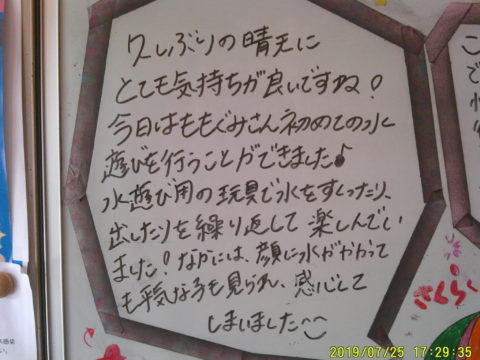 久しぶりの晴天に
とても気持ちが良いですね！
今日はももぐみさん初めての水
遊びを行うことができました♪
水遊び用の玩具で水をすくったり、
出したりを繰り返して楽しんでい
ました！なかには、顔に水がかかって
も平気な子も見られ、感心して
しまいました〜
さくら
2019/07/25 17:29:35